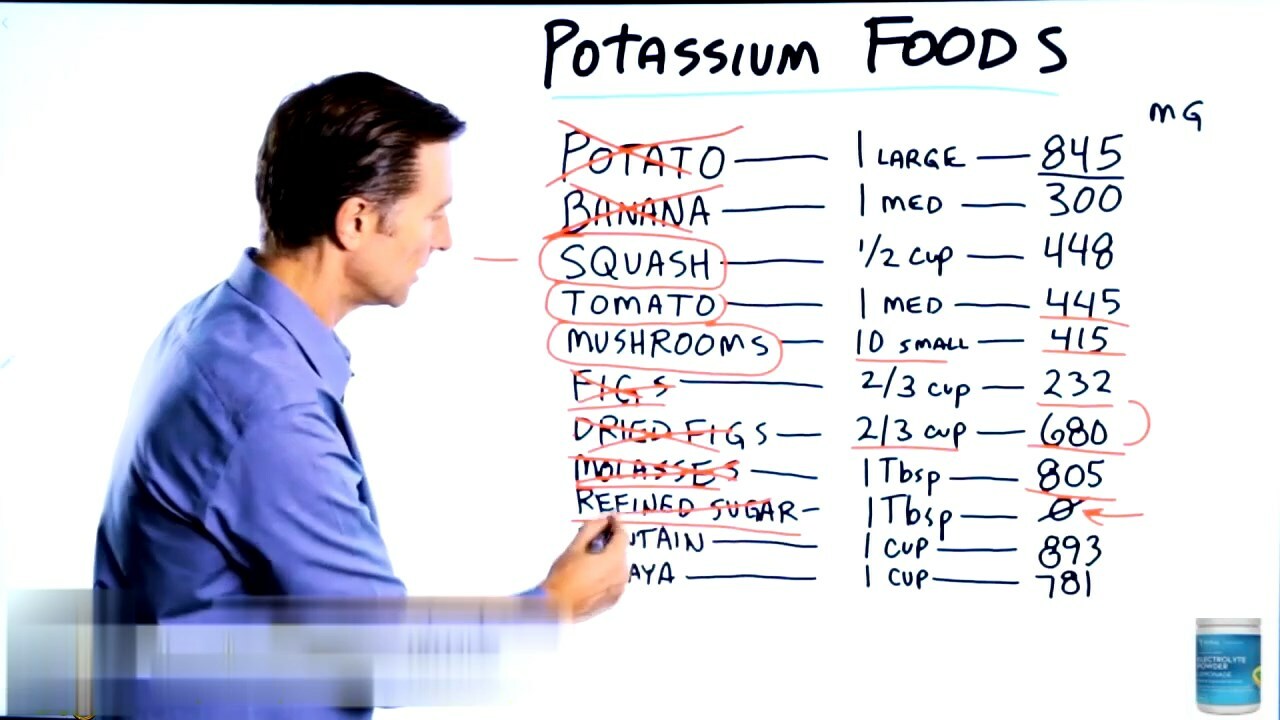 POTASSIUM FOODS
MG
POTATO — 1 LARGE — 845
BANANA — 1 MED — 300
SQUASH — 1/2 CUP — 448
TOMATO — 1 MED — 445
MUSHROOMS — 10 SMALL — 415
FIGS — 2/3 CUP — 232
DRIED FIGS — 2/3 CUP — 680
MOLASSES — 1 Tbsp — 805
REFINED SUGAR — 1 Tbsp — 0
1 CUP — 893
1 CUP — 781
ELECTROLYTE
POWDER
LEMONADE